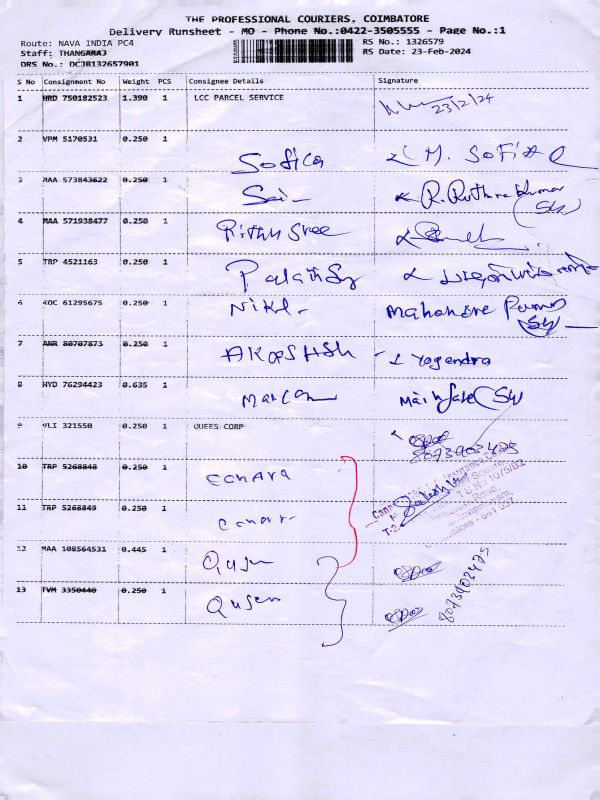 THE PROFESSIONAL COURIERS. COIMBATORE
Delivery Runsheet - MO - Phone No.:0422-3505555 - Page No.:1
Route: NAVA INDIA PC4 RS No.: 1326579
Staff: THANGARAJ RS Date: 23-Feb-2024
DRS No.: DCJB132657901
S No Consignment No Weight PCS Consignee Details Signature
1 HRD 750182523 1.390 1 LCC PARCEL SERVICE 23/2/24
2 VPM 5170531 0.250 1 Sofica M. SOFIA
3 MAA 573843622 0.250 1 Sai R. Ruthra Kumar
4 MAA 571938477 0.250 1 Rithu Sree
5 TRP 4521163 0.250 1
6 KOC 61295675 0.250 1 Nikl
7 ANR 80707873 0.250 1 AKASHSh Yogendra
8 HYD 76294423 0.635 1
9 VLI 321550 0.250 1 QUEES CORP 8073903425
10 TRP 5268848 0.250 1 Canara
11 TRP 5268849 0.250 1 Canar
12 MAA 108564531 0.445 1
13 TVM 3350440 0.250 1 8073903425